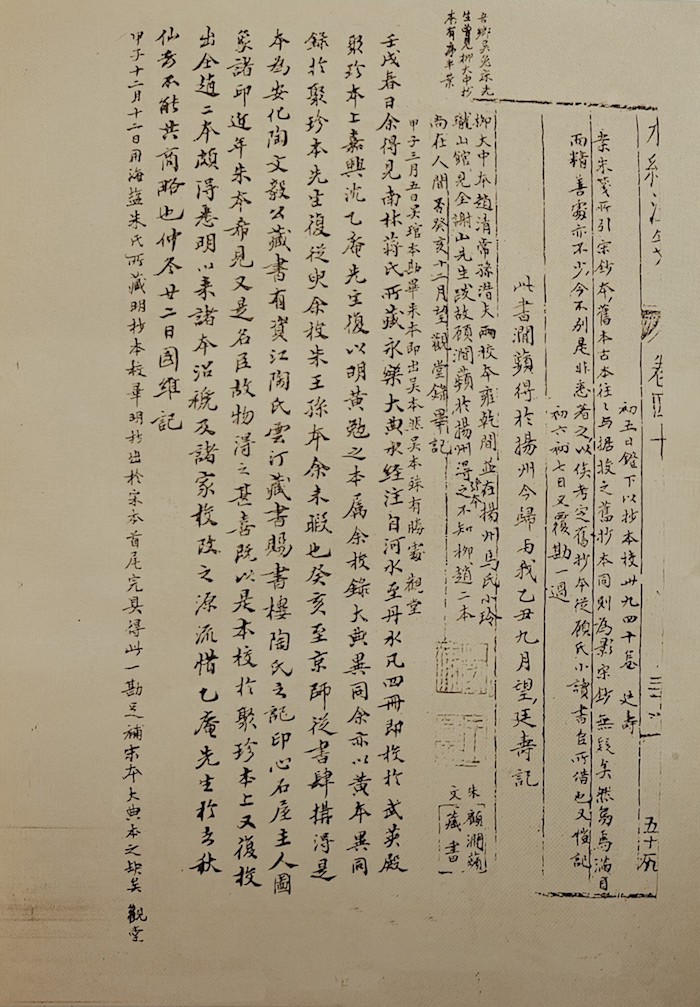 水經注箋 卷四十 三 五十九
初五日鐙下以抄本校卅九四十卷 廷壽
案朱箋所引宗鈔本舊本古本往〻与據校之舊抄本同則為影宗鈔無疑矣然烏焉滿目
而精善處亦不少今不別是非悉著之以俟考定舊抄本從顧氏小讀書台所借也又愷記
初六初七日又覆勘一過
此書澗薲得於揚州今歸与我乙丑九月望廷壽記
吾鄉吳兔牀先
生曾見柳大中抄
本有序半葉
柳大中本趙清常孫潛夫兩校本雍乾間並在揚州馬氏小玲
瓏山館見全謝山先生跋故顧澗薲於揚州得之不知柳趙二本
此本
尚在人間否癸亥十二月望觀堂錄畢記
甲子三月五日吳琯本勘畢朱本即出吳本然吳本殊有勝處 觀堂
朱文 顧澗薲藏書
壬戌春日余得見南林蔣氏所藏永樂大典水經注自河水至丹水凡四冊即校於武英殿
聚珍本上嘉興沈乙庵先生復以明黃勉之本屬余校錄大典異同余亦以黃本異同
錄於聚珍本先生復從臾余校朱王孫本余未暇也癸亥至京師從書肆搆得是
本為安化陶文毅公藏書有資江陶氏雲汀藏書賜書樓陶氏之記印心石屋主人圖
篆諸印近年朱本希見又是名臣故物得之甚喜既以是本校於聚珍本上又復校
出全趙二本頗得悉明以來諸本沿褫及諸家校改之源流惜乙庵先生於去秋
仙去不能共商略也仲冬廿二日國維記
甲子十二月十二日用海鹽朱氏所藏明抄本校畢明抄出於宋本首尾完具得此一勘足補宋本大典本之缺矣 觀堂